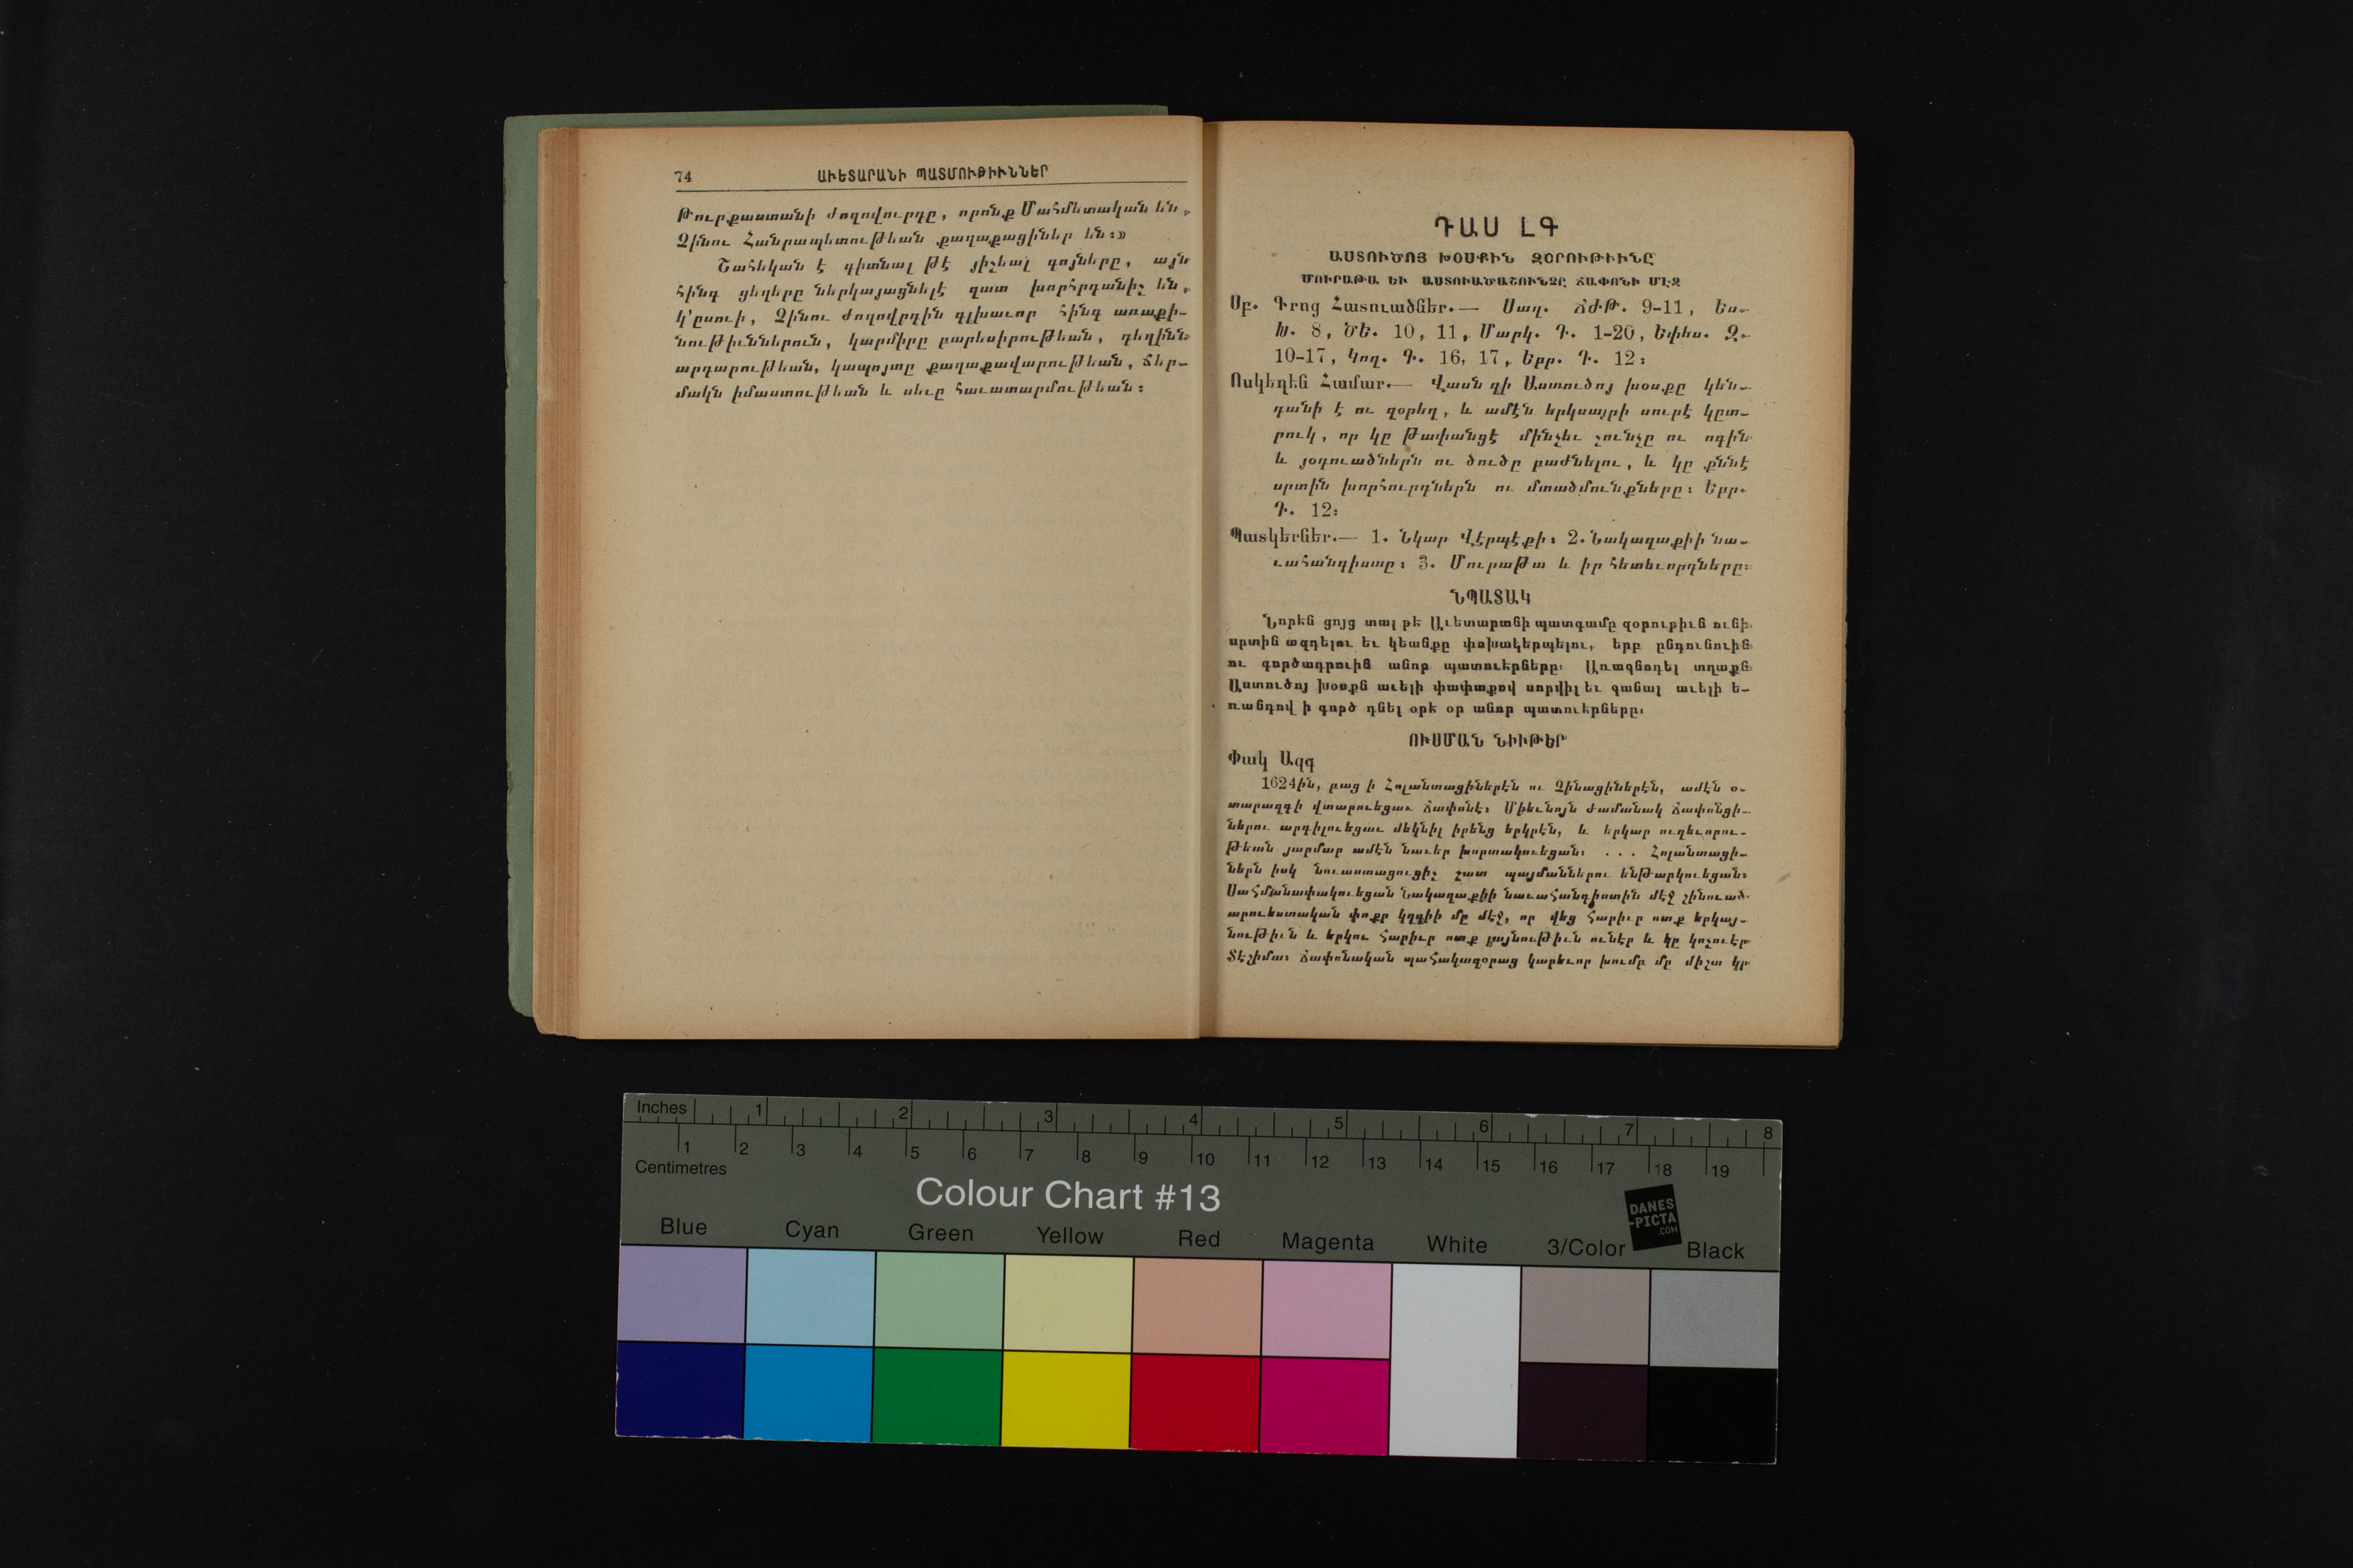 74
ԱՒԵՏԱՐԱՆԻ ՊԱՏՄՈՒԹԻՒՆՆԵՐ
Թուրքաստանի ժողովուրդը, որոնք Մահմետական են,
Չինու Հանրապետութեան քաղաքացիներ են։»
Շահեկան է գիտնալ թէ յիշեալ գոյները, այն
հինգ ցեղերը ներկայացնելէ զատ խորհրդանիշ են,
կ՚ըսուի, Չինու ժողովրդին գլխաւոր հինգ առաքի-
նութիւններուն, կարմիրը բարեսիրութեան, դեղինն
արդարութեան, կապոյտը քաղաքավարութեան, ճեր-
մակն իմաստութեան և սեւը հաւատարմութեան։
ԴԱՍ ԼԳ
ԱՍՏՈՒԾՈՅ ԽՕՍՔԻՆ ԶՕՐՈՒԹԻՒՆԸ
ՄՈՒՐԱԹԱ ԵՒ ԱՍՏՈՒԱԾԱՇՈՒՆՉԸ ՃԱՓՈՆԻ ՄԷՋ
Սբ. Գրոց Հատուածներ.— Սաղ. ՃԺԹ. 9-11, Ես.
Խ. 8, ԾԵ. 10, 11, Մարկ. Դ. 1-20, Եփես. Զ.
10-17, Կող. Գ. 16, 17, Եբր. Դ. 12։
Ոսկեղէն Համար.— Վասն զի Աստուծոյ խօսքը կեն-
դանի է ու զօրեղ, և ամէն երկսայրի սուրէ կըտ-
րուկ, որ կը թափանցէ մինչեւ շունչը ու ոգին
և յօդուածներն ու ծուծը բաժնելու, և կը քննէ
սրտին խորհուրդներն ու մտածմունքները։ Եբր.
Դ. 12։
Պատկերներ.— 1. Նկար Վէրպէքի։ 2. Նակաղաքիի նա-
ւահանգիստը։ 3. Մուրաթա և իր հետեւորդները։
ՆՊԱՏԱԿ
Նորէն ցոյց տալ թէ Աւետարանի պատգամը զօրութիւն ունի
սրտին ազդելու եւ կեանքը փոխակերպելու, երբ ընդունուին
ու գործադրուին անոր պատուէրները։ Առաջնորդել տղաքն
Աստուծոյ խօսքն աւելի փափաքով սորվիլ եւ ջանալ աւելի ե-
ռանդով ի գործ դնել օրէ օր անոր պատուէրները։
ՈՒՍՄԱՆ ՆԻՒԹԵՐ
Փակ Ազգ
1624ին, բաց ի Հոլանտացիներէն ու Չինացիներէն, ամէն օ-
տարազգի վտարուեցաւ Ճափոնէ։ Միեւնոյն ժամանակ Ճափոնցի-
ներու արգիլուեցաւ մեկնիլ իրենց երկրէն, և երկար ուղեւորու-
թեան յարմար ամէն նաւեր խորտակուեցան։ ... Հոլանտացի-
ներն իսկ նուաստացուցիչ շատ պայմաններու ենթարկուեցան։
Սահմանափակուեցան Նակաղաքիի նաւահանգիստին մէջ շինուած
արուեստական փոքր կղզիի մը մէջ, որ վեց հարիւր ոտք երկայ-
նութիւն և երկու հարիւր ոտք լայնութիւն ունէր և կը կոչուէր
Տէշիմա։ Ճափոնական պահակազօրաց կարեւոր խումբ մը միշտ կը
Inches 1 2 3 4 5 6 7 8
1 2 3 4 5 6 7 8 9 10 11 12 13 14 15 16 17 18 19
Centimetres
Colour Chart #13
DANES
-PICTA
.COM
Blue Cyan Green Yellow Red Magenta White 3/Color Black